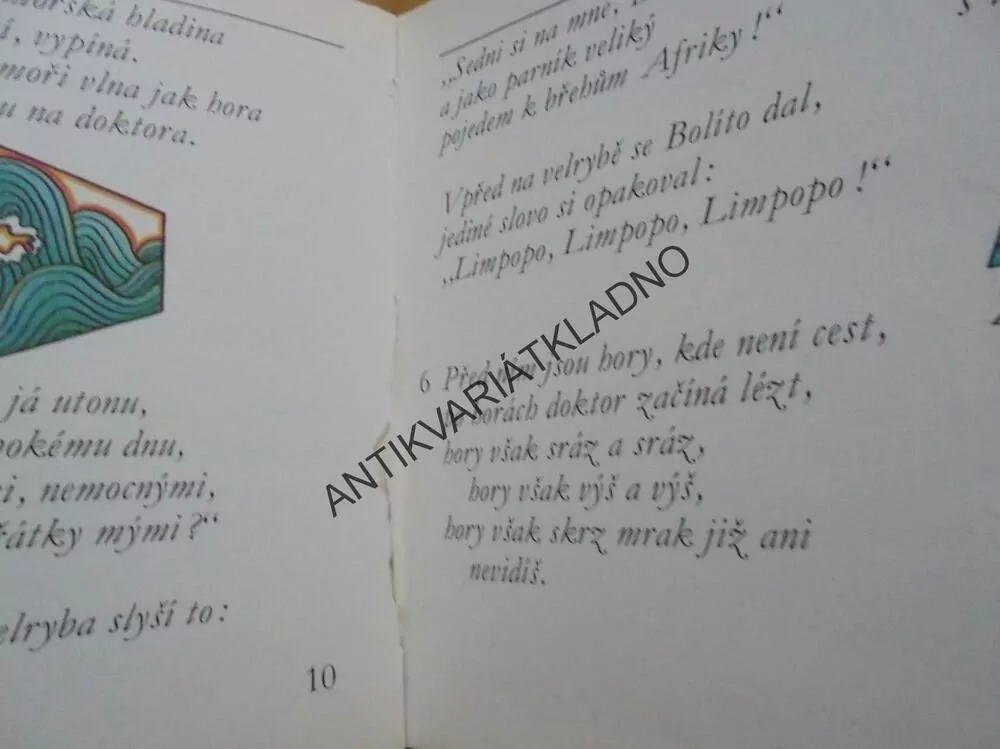 hladina
í, vypíná.
moři vlna jak hora
u na doktora.
já utonu,
dnu,
nemocnými,
mými?“
slyší to:
10
„Sedni si na mne,
a jako parník veliký
pojedem k břehům Afriky!“
Vpřed na velrybě se Bolíto dal,
jediné slovo si opakoval:
„Limpopo, Limpopo, Limpopo!“
6 Před ním jsou hory, kde není cest,
horách doktor začíná lézt,
hory však sráz a sráz,
hory však výš a výš,
hory však skrz mrak již ani
nevidíš.
ANTIKVARIÁTKLADNO